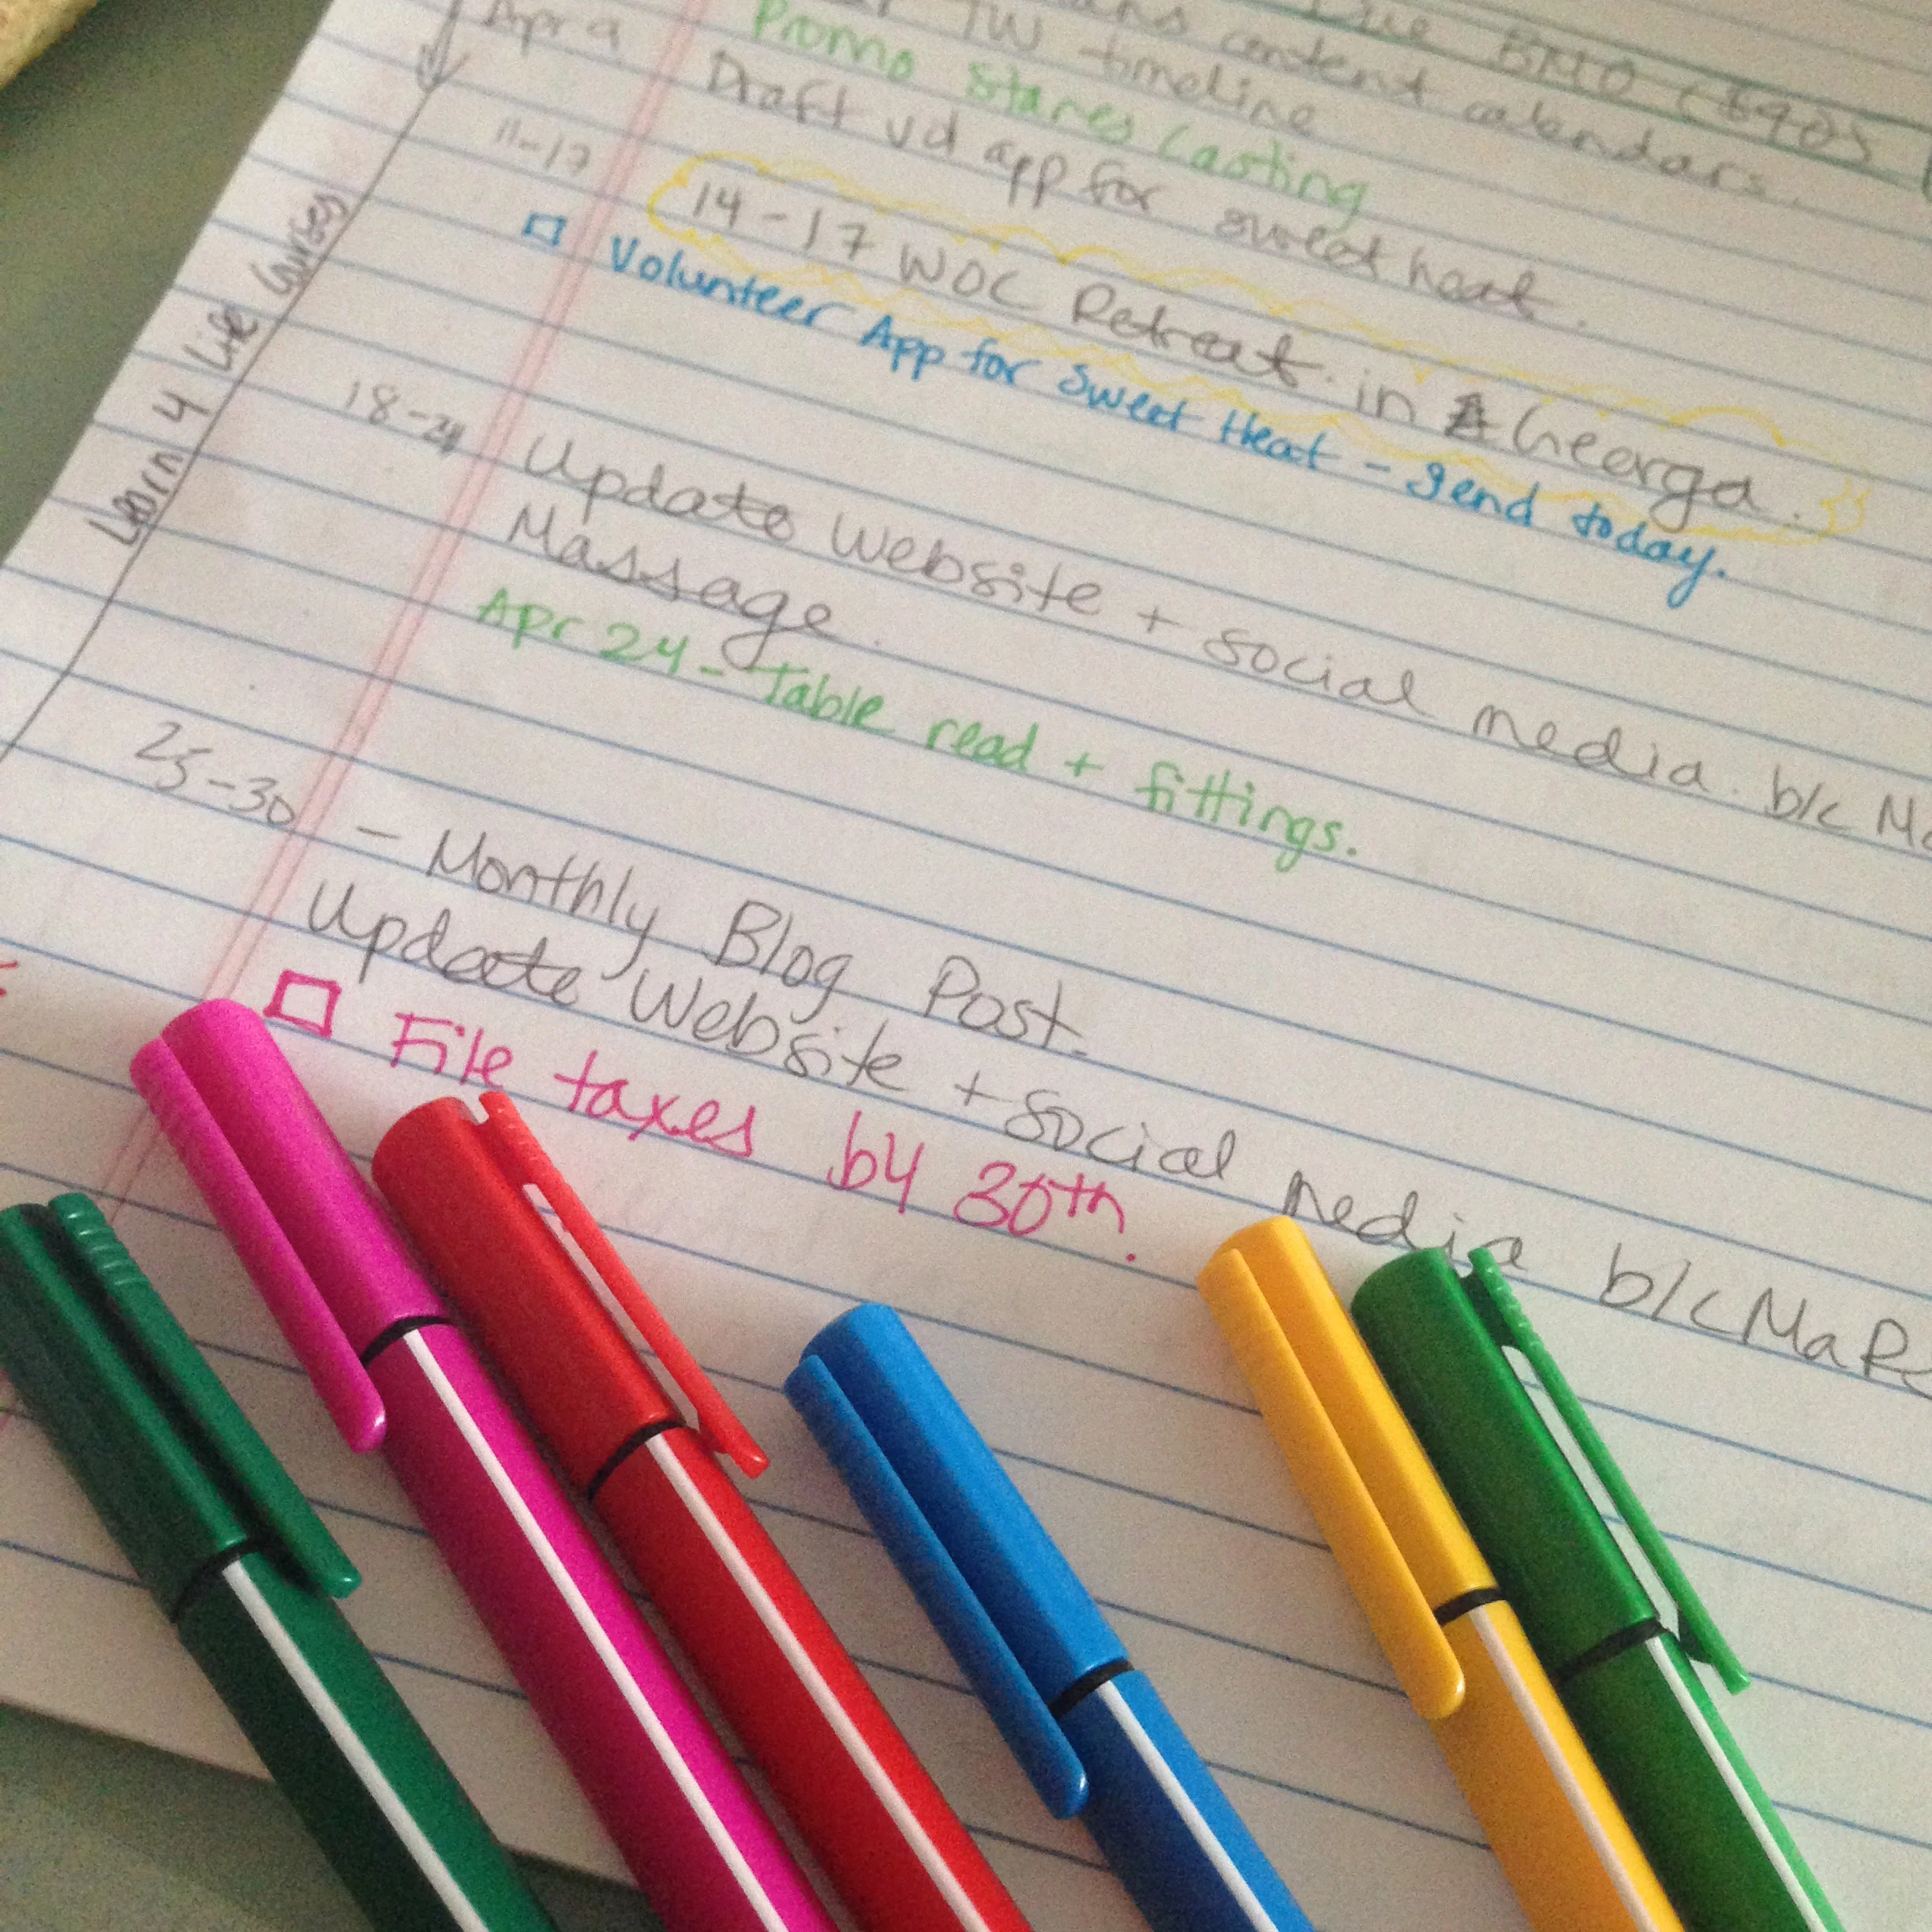 Due BMO (890)
content calendars.
TW timeline
Promo Stares Casting
Apr 9 Draft vd app for sweet heat.
11-17 14-17 WOC Retreat in Geerga.
Volunteer App for Sweet Heat - send today.
Learn 4 Life Courses
18-24 Update Website + social media b/c Ma
Massage.
Apr 24 - Table read + fittings.
25-30 - Monthly Blog Post.
Update Website + social media b/c MaRs
File taxes by 30th.